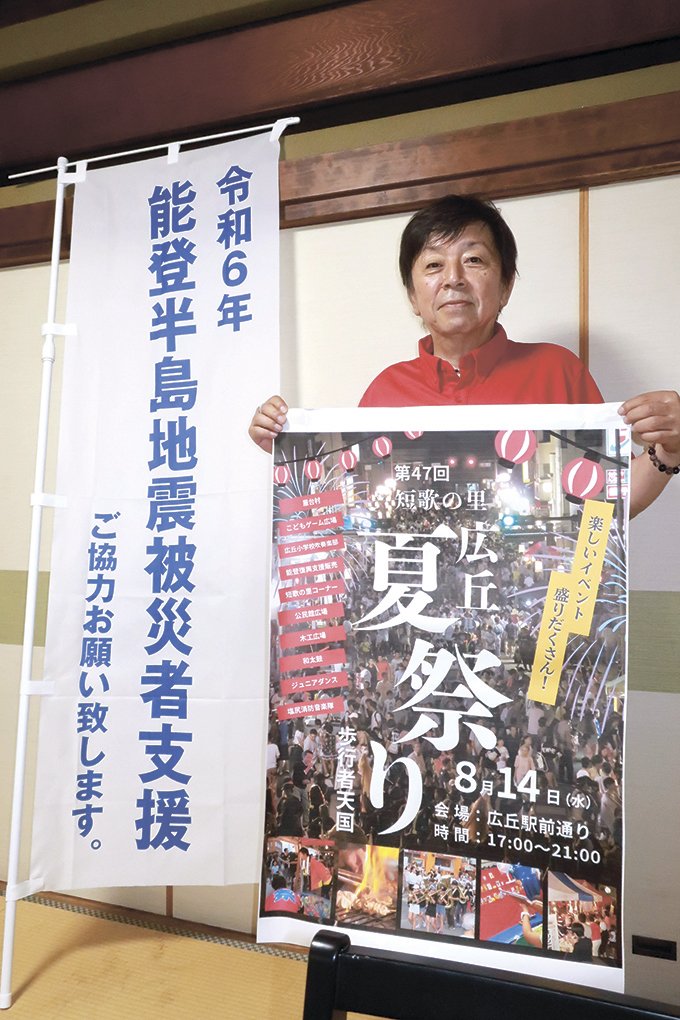 令和6年
能登半島地震被災者支援
ご協力お願い致します。
第47回
短歌の里
広丘
夏祭り
歩行者天国
楽しいイベント
盛りだくさん!
屋台村
こどもゲーム広場
広丘小学校吹奏楽部
能登復興支援販売
短歌の里コーナー
公民館広場
木工広場
和太鼓
ジュニアダンス
塩尻消防音楽隊
8月14日(水)
会場:広丘駅前通り
時間:17:00〜21:00